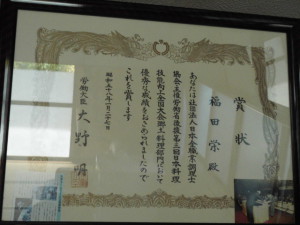 賞状
福田栄殿
あなたは社団法人日本全職業調理士
協会主催労働省後援第三回日本料理
技能向上全国大会郷土料理部門において
優秀な成績をおさめられましたので
これを賞します
昭和五十八年一月二十七日
労働大臣 大野明